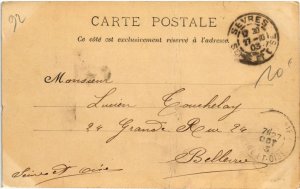 92
CARTE POSTALE
Ce côté est exclusivement réservé à l'adresse
SEVRES
Monsieur
Lucien Touchelay
24 Grande Rue 24
Bellevue
Seine et Oise